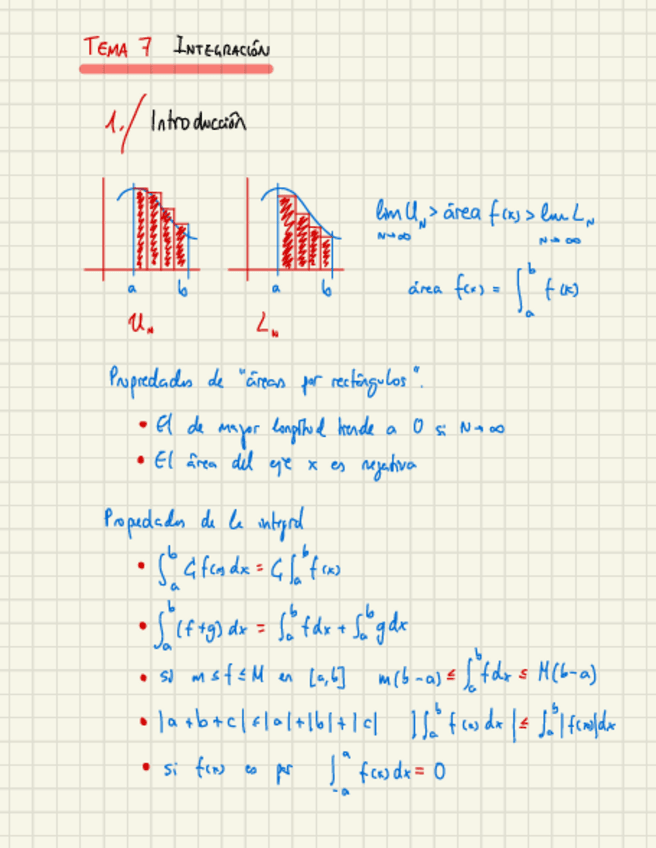 TEMA 7 INTEGRACIÓN
1./ Introducción
a b
U_N
a b
L_N
lim U_N > área f(x) > lim L_N
N→∞ N→∞
área f(x) = ∫_a^b f(x)
Propiedades de "áreas por rectángulos".
• El de mayor longitud tiende a 0 si N→∞
• El área del eje x es negativa
Propiedades de la integral
• ∫_a^b C f(x) dx = C ∫_a^b f(x)
• ∫_a^b (f+g) dx = ∫_a^b f dx + ∫_a^b g dx
• si m ≤ f ≤ M en [a,b] m(b-a) ≤ ∫_a^b f dx ≤ M(b-a)
• |a+b+c| ≤ |a|+|b|+|c| |∫_a^b f(x) dx| ≤ ∫_a^b |f(x)| dx
• si f(x) es par ∫_{-a}^a f(x) dx = 0